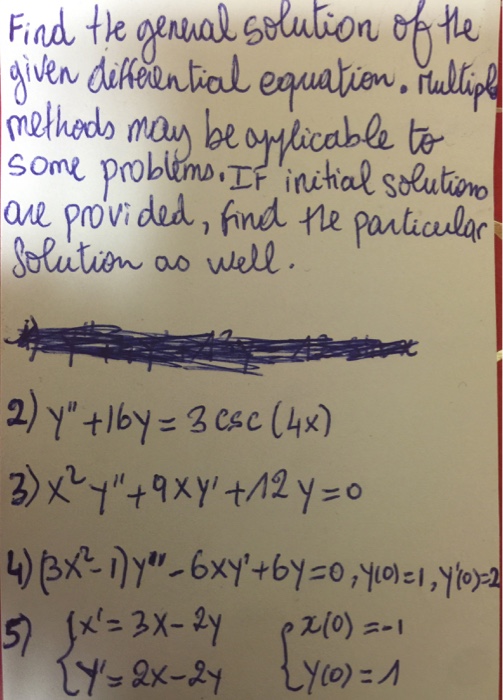 Find the general solution of the
given differential equation. Multiple
methods may be applicable to
some problems. IF initial solutions
are provided, find the particular
solution as well.
2) y'' + 16y = 3 csc (4x)
3) x² y'' + 9xy' + 12y = 0
4) (3x² - 1) y''' - 6xy' + 6y = 0, y(0) = 1, y'(0) = 2
5) { x' = 3x - 2y { x(0) = -1
{ y' = 2x - 2y { y(0) = 1